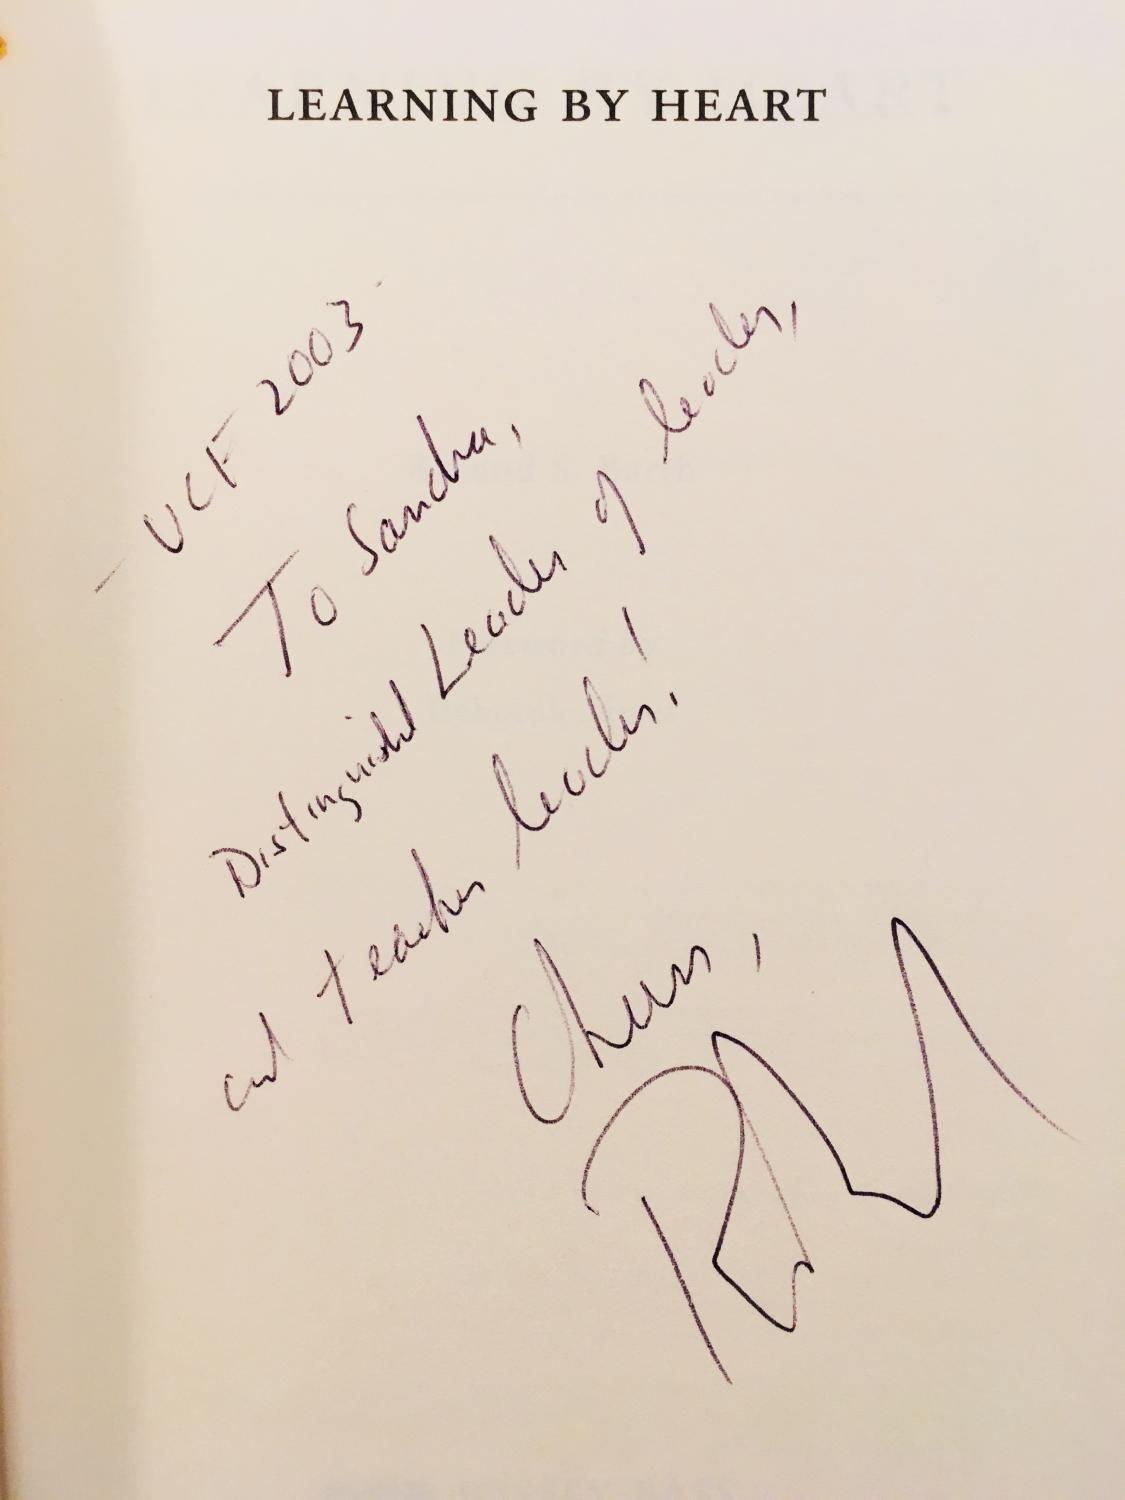 LEARNING BY HEART
- UCF 2003 -
To Sandra,
Distinguished Leader of leaders,
and teacher leaders!
Cheers,